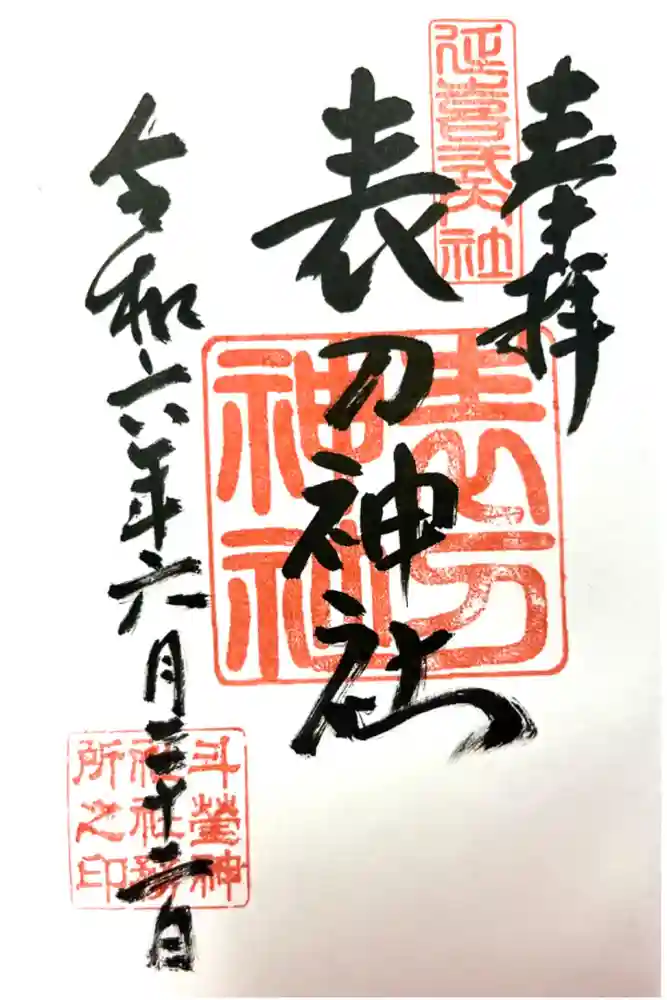 奉拝
延喜式内社
表刀神社
表刀
神社
令和六年六月二十二日
斗瑩神
社社務
所之印